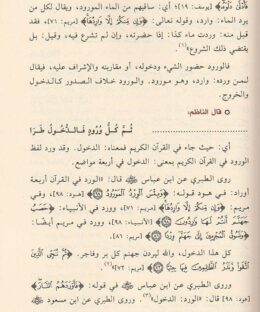 فَأَدْلَىٰ دَلْوَهُ﴾ [يوسف: ١٩] أي: ساقيهم من الماء المورود، ويقال لكل من
يرد الماء: وارد، وقوله تعالى: ﴿وَإِن مِّنكُمْ إِلَّا وَارِدُهَا﴾ [مريم: ٧١]، فقد
قيل: منه وردت ماء كذا: إذا حضرته، وإن لم تشرع فيه، وقيل: بل
يقتضي ذلك الشروع(١).
فالورود حضور الشيء ودخوله، أو مقاربته والإشراف عليه، فيقال
لمن ورده: وارد، وهو مورود. والورود خلاف الصدور كالدخول
والخروج.
قال الناظم:
ثُمَّ كُلُّ وُرُودٍ فَالدُّخُولُ طُرًّا
أي: حيث جاء في القرآن الكريم فمعناه: الدخول. وقد ورد لفظ
الورد في القرآن الكريم بمعنى: الدخول في أربعة مواضع.
روى الطبري عن ابن عباس قال: «الورد في القرآن أربعة
أوراد: في هود قوله: ﴿وَبِئْسَ الْوِرْدُ الْمَوْرُودُ﴾ [٩٨]، وفي مريم:
﴿وَإِن مِّنكُمْ إِلَّا وَارِدُهَا﴾ [٧١] وورد في الأنبياء: ﴿حَصَبُ
جَهَنَّمَ أَنتُمْ لَهَا وَارِدُونَ﴾ [الأنبياء: ٩٨]، وورد في مريم أيضًا:
﴿وَنَسُوقُ الْمُجْرِمِينَ إِلَىٰ جَهَنَّمَ وِرْدًا﴾ [مريم: ٨٦].
كل هذا الدخول، والله ليردن جهنم كل بر وفاجر. ﴿ثُمَّ نُنَجِّي الَّذِينَ
اتَّقَوا وَّنَذَرُ الظَّالِمِينَ فِيهَا جِثِيًّا﴾ [مريم: ٧٢](٢).
وروى الطبري عن ابن عباس في قوله: ﴿فَأَوْرَدَهُمُ النَّارَ﴾
[هود: ٩٨] قال: «الورد: الدخول»(٣). وروى الطبري عن ابن مسعود